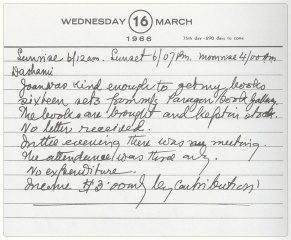 WEDNESDAY 16 MARCH
1966
75th day - 290 days to come
Sunrise 6/12am. Sunset 6/07pm. Moonrise 4/00am
Dashami
Joan was kind enough to get my books
sixteen sets from Paragon Book Gallery
The books are brought and kept in stock.
No letter received.
In the evening there was meeting.
The attendance was thin
No expenditure.
Income $3.00 only by contribution